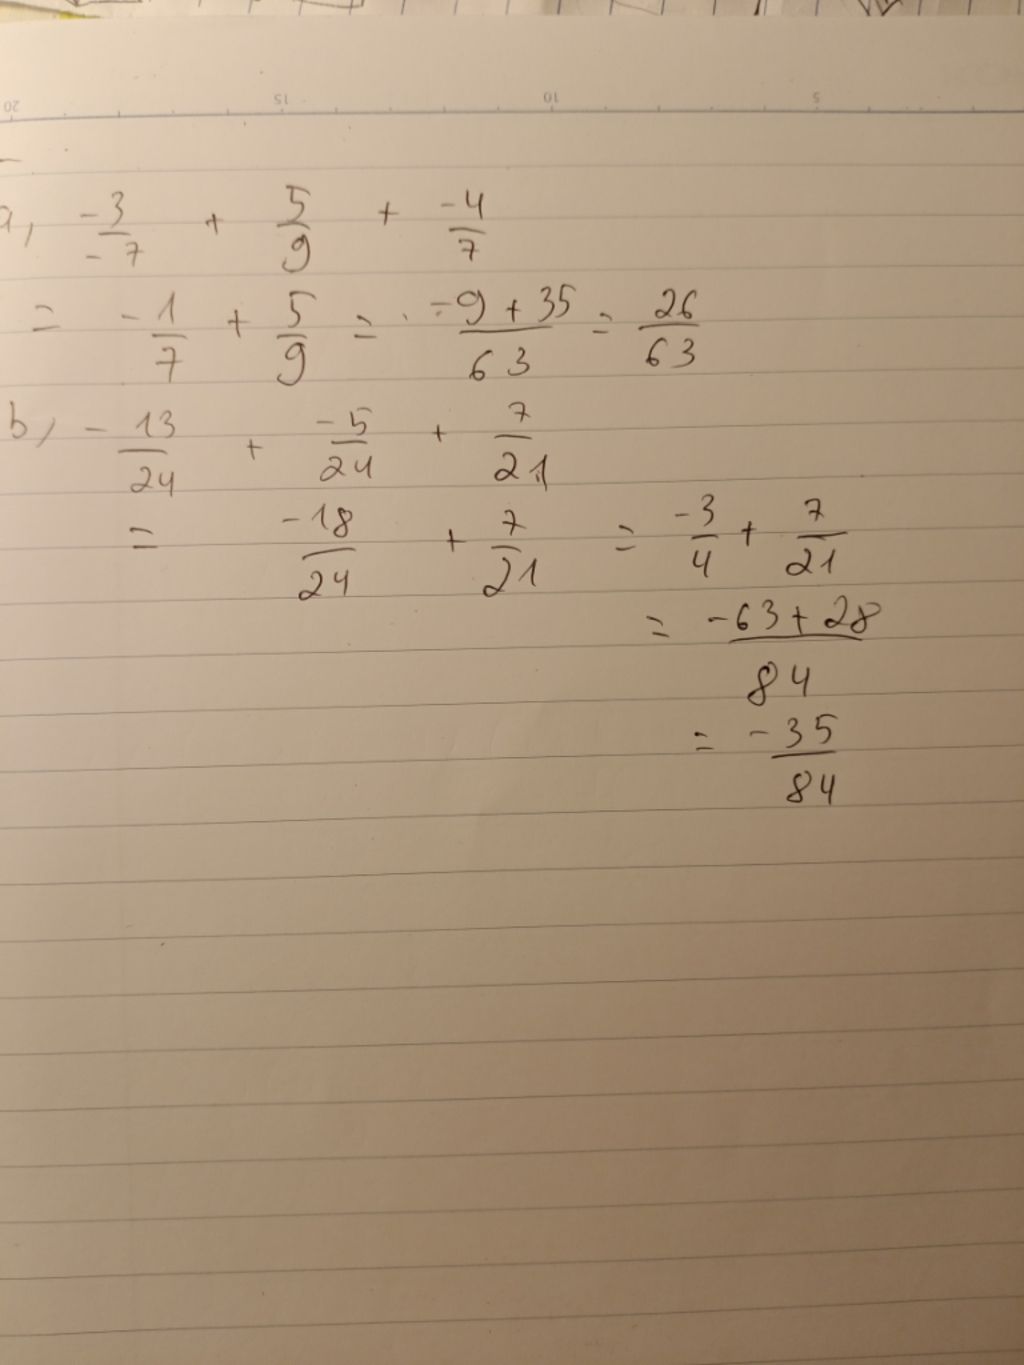 20 15 10 5
a, -3/-7 + 5/9 + -4/7
= -1/7 + 5/9 = -9+35/63 = 26/63
b, -13/24 + -5/24 + 7/21
= -18/24 + 7/21 = -3/4 + 7/21
= -63+28/84
= -35/84